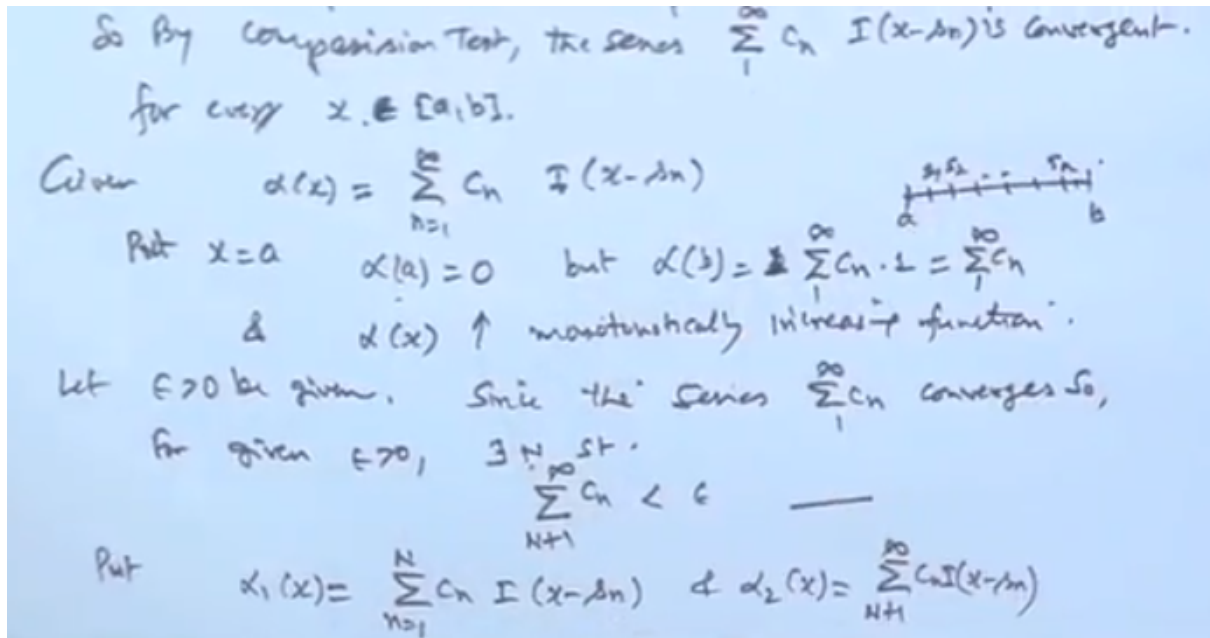 So By comparision Test, the series ∞ Σ 1 Cn I(x-sn) is convergent.
for every x ∈ [a,b].
Given α(x) = ∞ Σ n=1 Cn I(x-sn)
s1 s2 .. sn
a b
Put x=a α(a)=0 but α(b)= ∞ Σ 1 Cn.1 = ∞ Σ 1 Cn
& α(x) ↑ monotonically increasing function.
Let ϵ>0 be given. Since the series ∞ Σ 1 Cn converges So,
for given ϵ>0, ∃ N st.
∞ Σ N+1 Cn < ϵ
Put α1(x)= N Σ n=1 Cn I(x-sn) & α2(x)= ∞ Σ N+1 CnI(x-sn)